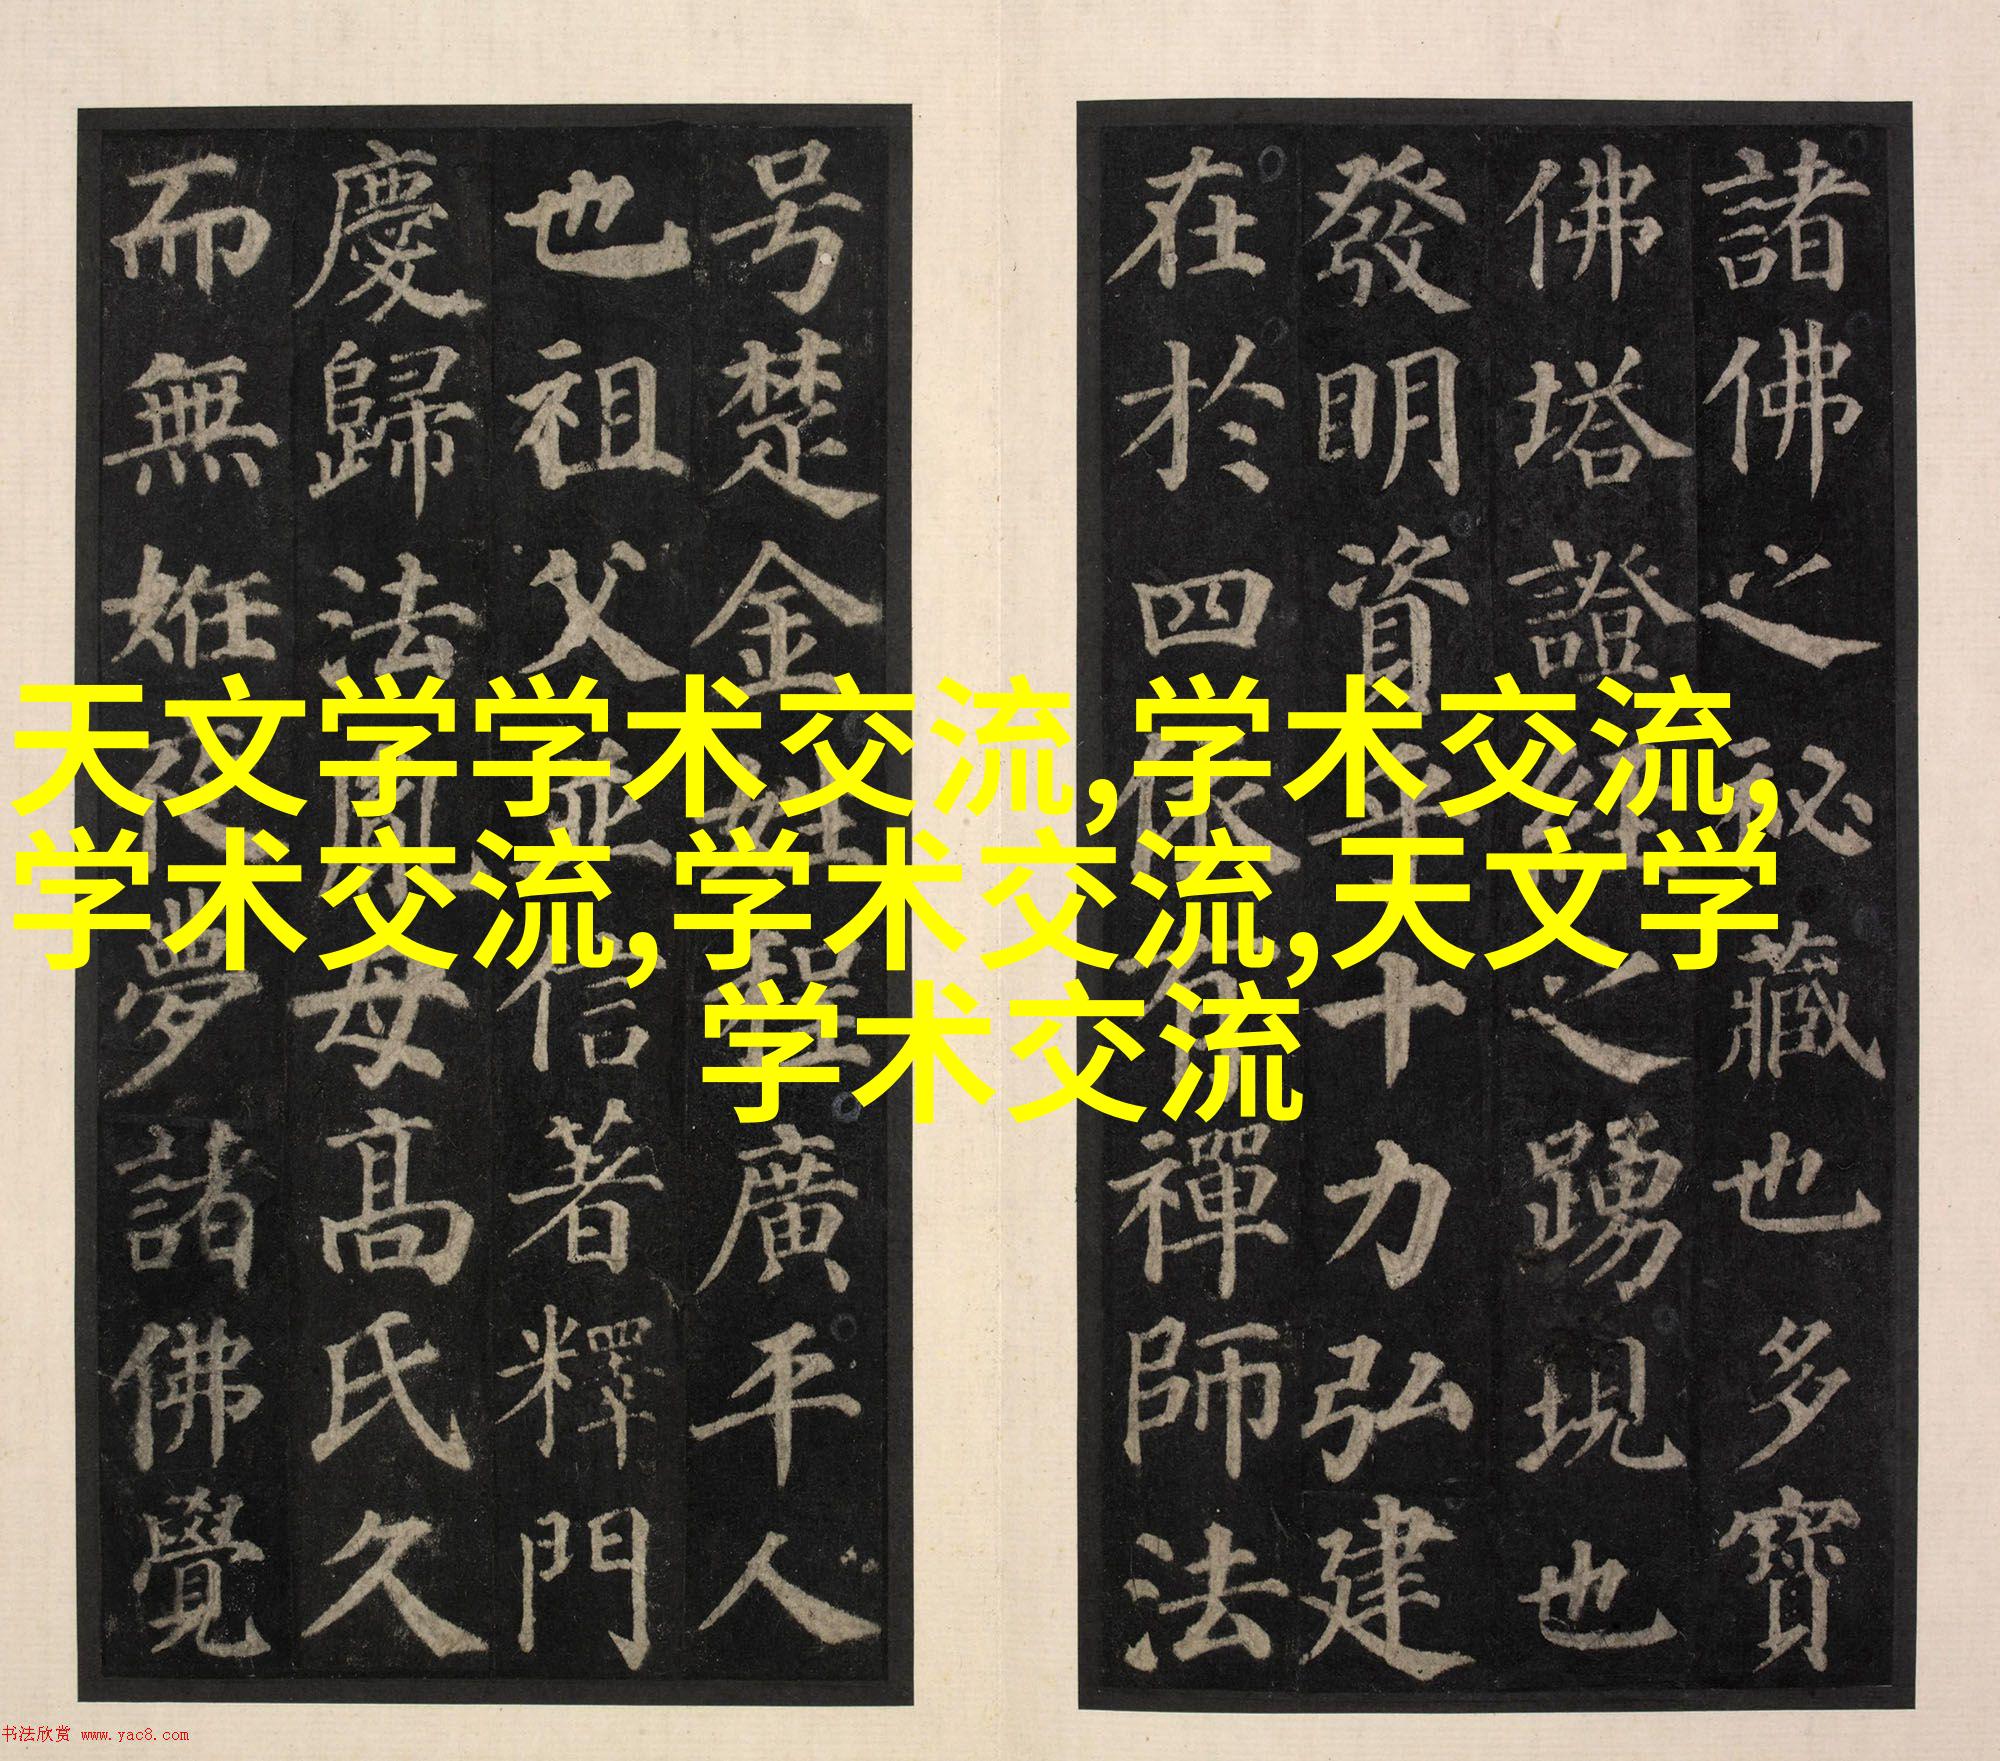 諸佛之祕藏也多寶
佛塔證經之踴現也
發明資乎十力弘建
在於四依有禪師法
号楚金姓程廣平人
也祖父並信著釋門
慶歸法胤母髙氏久
而無姙夜夢諸佛覺
天文学学术交流,学术交流,
学术交流,学术交流,天文学
学术交流
书法欣赏 www.yac8.com